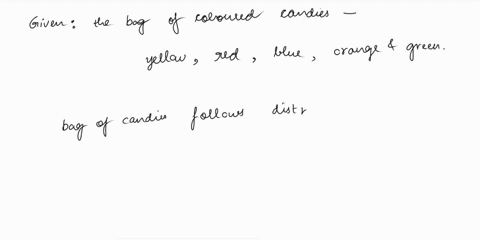 Given: the bag of coloured candies —
yellow, red, blue, orange & green.
bag of candies follows distr